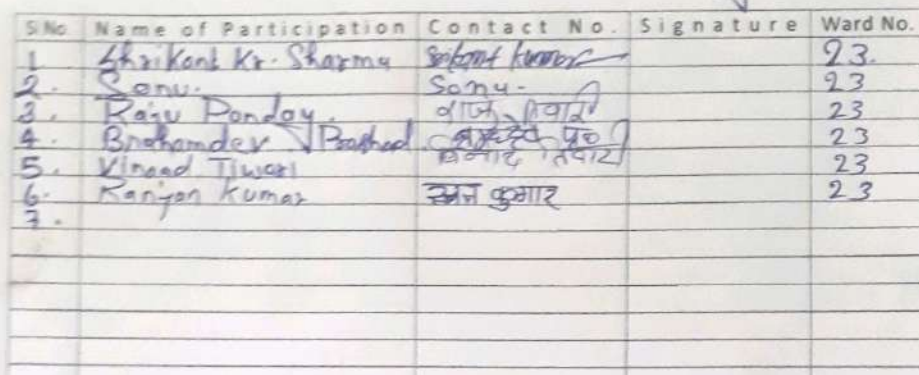 S No Name of Participation Contact No. Signature Ward No.
1 Shrikant Kr. Sharma 23.
2. Sonu. Sonu- 23
3. Raju Panday. 23
4. Brahamdev Prashad 23
5. Vinood Tiwari विनोद तिवारी 23
6. Ranjan Kumar कुमार 23
7.